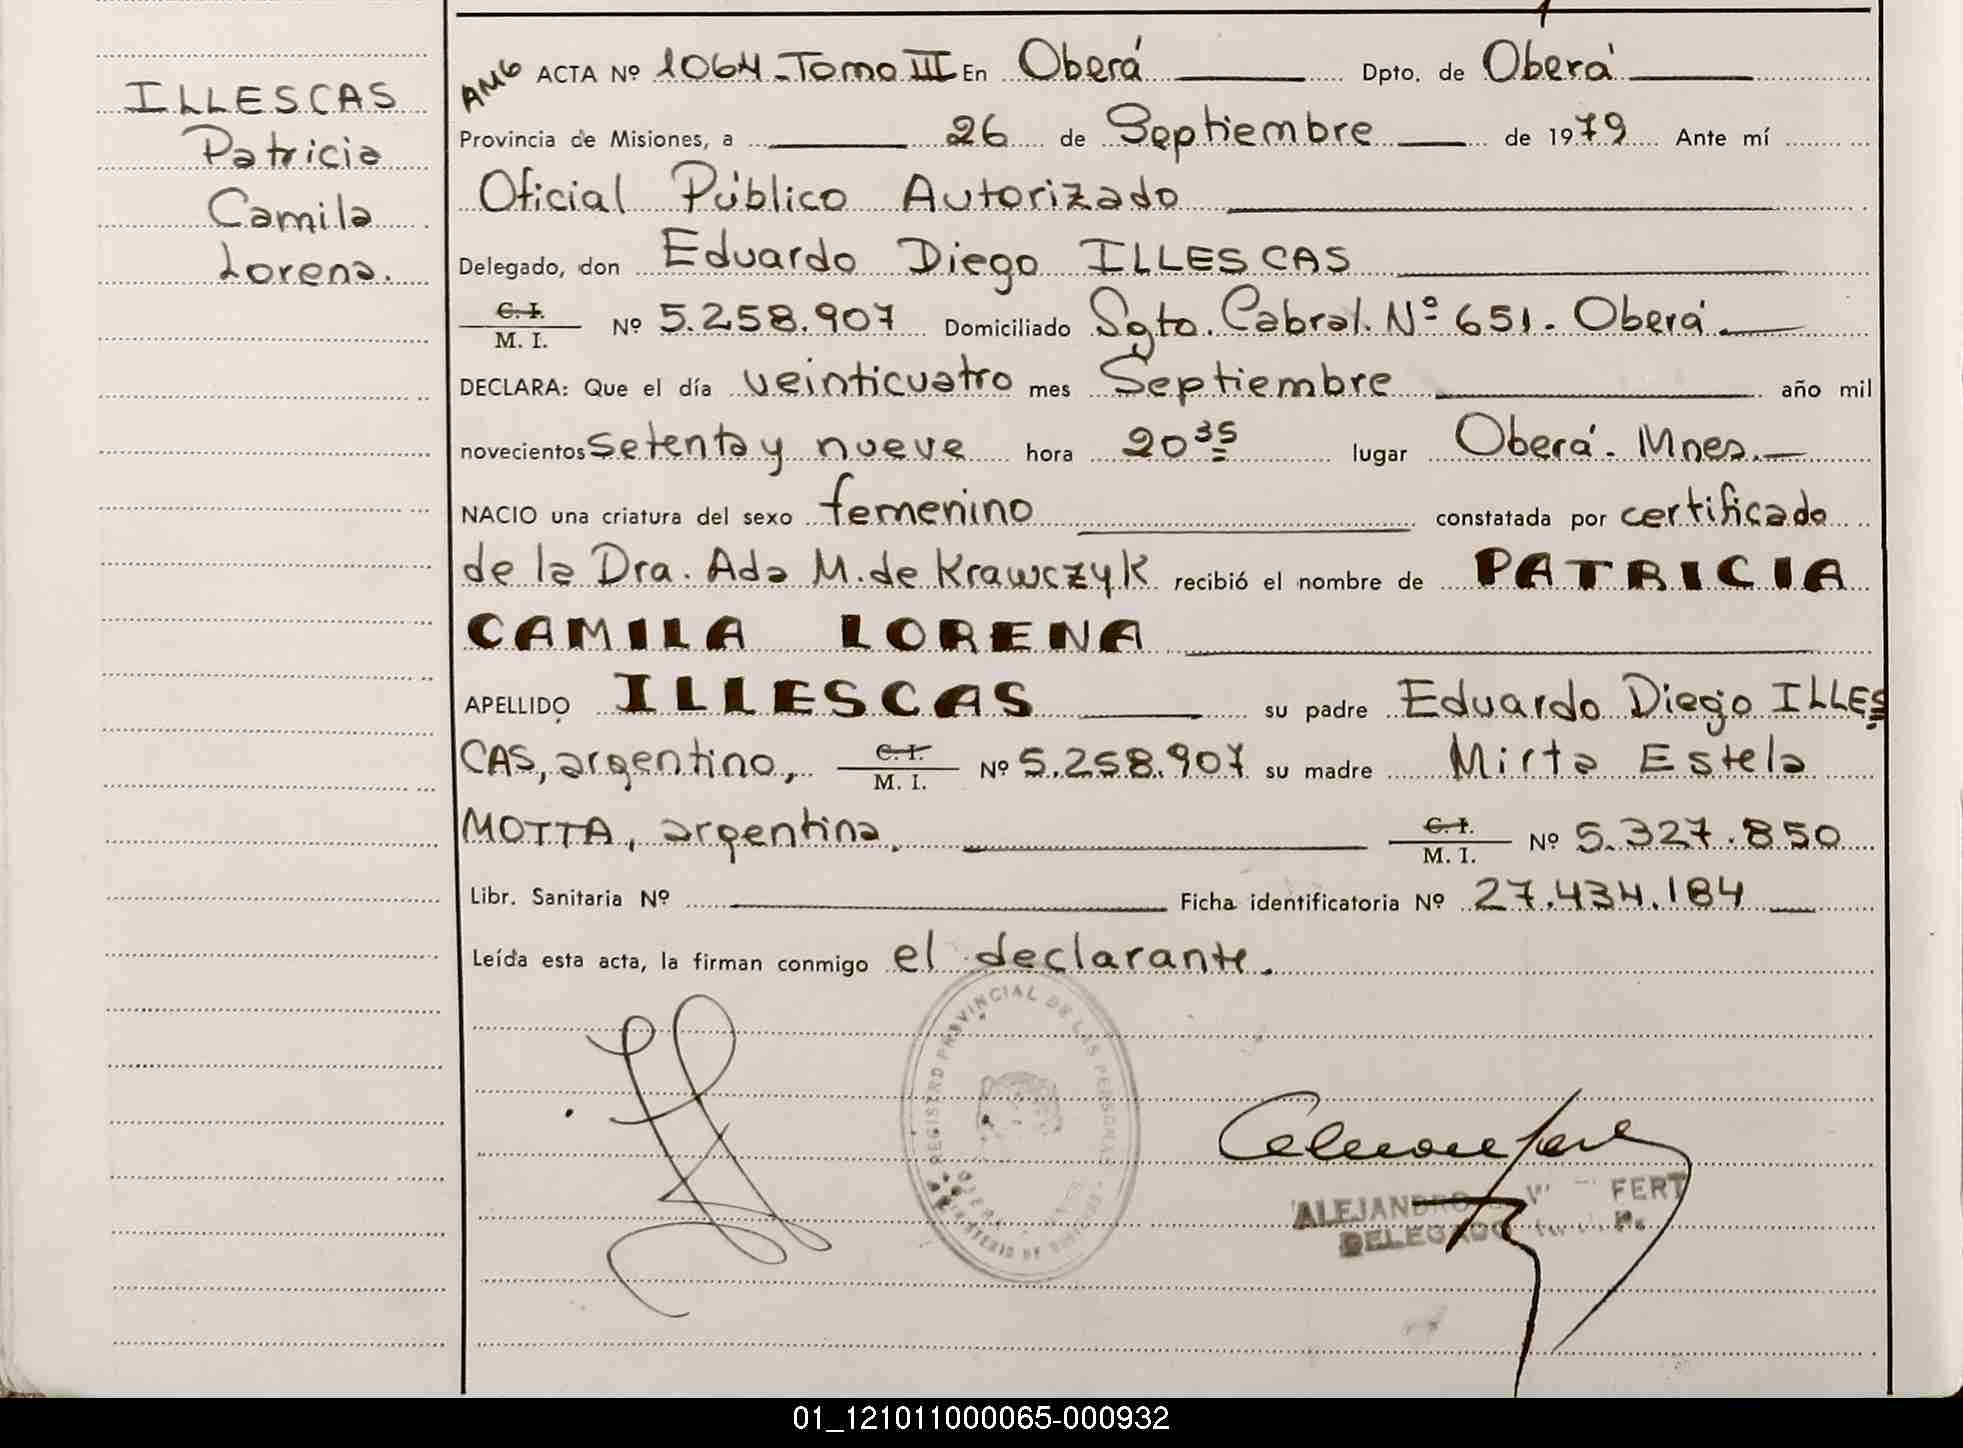 ILLESCAS
Patricia
Camila
Lorena.
AMG ACTA Nº 1064-Tomo III En Oberá Dpto. de Oberá
Provincia de Misiones, a 26 de Septiembre de 1979 Ante mí
Oficial Público Autorizado
Delegado, don Eduardo Diego ILLESCAS
C. I.
M. I. Nº 5.258.907 Domiciliado Sgto. Cabral. Nº 651. Oberá.
DECLARA: Que el día veinticuatro mes Septiembre año mil
novecientos setenta y nueve hora 20 35 lugar Oberá. Mnes.
NACIO una criatura del sexo femenino constatada por certificado
de la Dra. Ada M. de Krawczyk recibió el nombre de PATRICIA
CAMILA LORENA
APELLIDO ILLESCAS su padre Eduardo Diego ILLES
CAS, argentino, C. I. M. I. Nº 5.258.907 su madre Mirta Estela
MOTTA, argentina. C. I. M. I. Nº 5.327.850
Libr. Sanitaria Nº Ficha identificatoria Nº 27.434.184
Leída esta acta, la firman conmigo el declarante.
REGISTRO PROVINCIAL DE LAS PERSONAS
ALEJANDRO FERT
DELEGADO
01_121011000065-000932